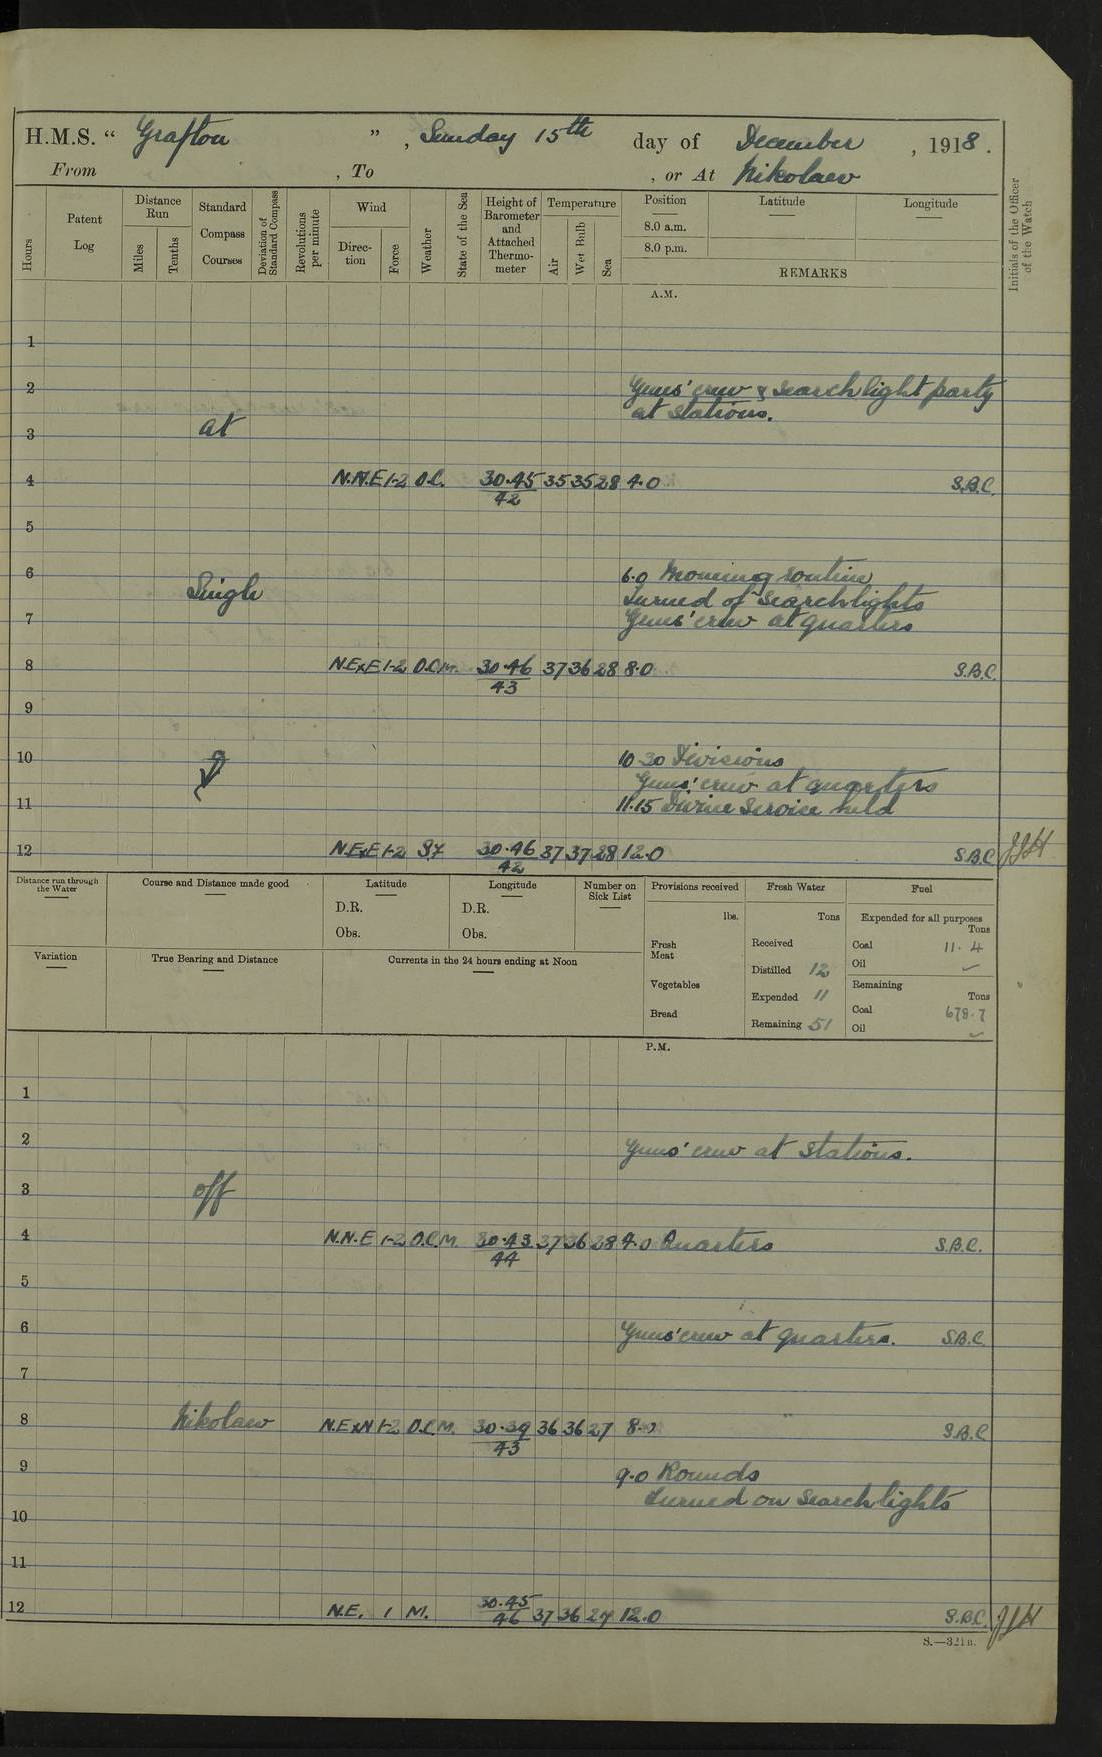 H.M.S. " Grafton ", Sunday 15th day of December, 1918.
From , To , or At Nikolaev
Hours
Patent Log
Distance Run
Miles
Tenths
Standard Compass Courses
Deviation of Standard Compass
Revolutions per minute
Wind
Direc-tion
Force
Weather
State of the Sea
Height of Barometer and Attached Thermo-meter
Temperature
Air
Wet Bulb
Sea
Position
8.0 a.m.
8.0 p.m.
Latitude
Longitude
REMARKS
Initials of the Officer of the Watch
A.M.
1
2 Guns' crew & Searchlight party
at stations.
3 at
4 N.N.E 1-2 O.C. 30.45 35 35 28 4.0 S.B.C.
42
5
6 6.0 Morning routine
Singh
Turned off Searchlights
7 Guns' crew at quarters
8 N.ExE 1-2 O.C.M. 30.46 37 36 28 8.0 S.B.C.
43
9
10 10 30 Divisions
Guns' crew at quarters
11 11.15 Divine Service held
12 N.ExE 1-2 30.46 37 37 28 12.0 S.B.C
42
Distance run through the Water
Course and Distance made good
Latitude
D.R.
Obs.
Longitude
D.R.
Obs.
Number on Sick List
Provisions received
lbs.
Fresh Meat
Vegetables
Bread
Fresh Water
Tons
Received
Distilled 12
Expended 11
Remaining 51
Fuel
Expended for all purposes
Tons
Coal 11.4
Oil
Remaining
Tons
Coal 678.7
Oil
Variation
True Bearing and Distance
Currents in the 24 hours ending at Noon
P.M.
1
2 Guns' crew at Stations.
3 off
4 N.N.E 1-2 O.C.M. 30.43 37 36 28 4.0 Quarters S.B.C.
44
5
6 Guns' crew at quarters. S.B.C
7
8 Nikolaev N.ExN 1-2 O.C.M. 30.39 36 36 27 8.0 S.B.C
43
9 9.0 Rounds
Turned on Searchlights
10
11
12 N.E. 1 M. 30.45 37 36 27 12.0 S.B.C.
46
S.—321B.